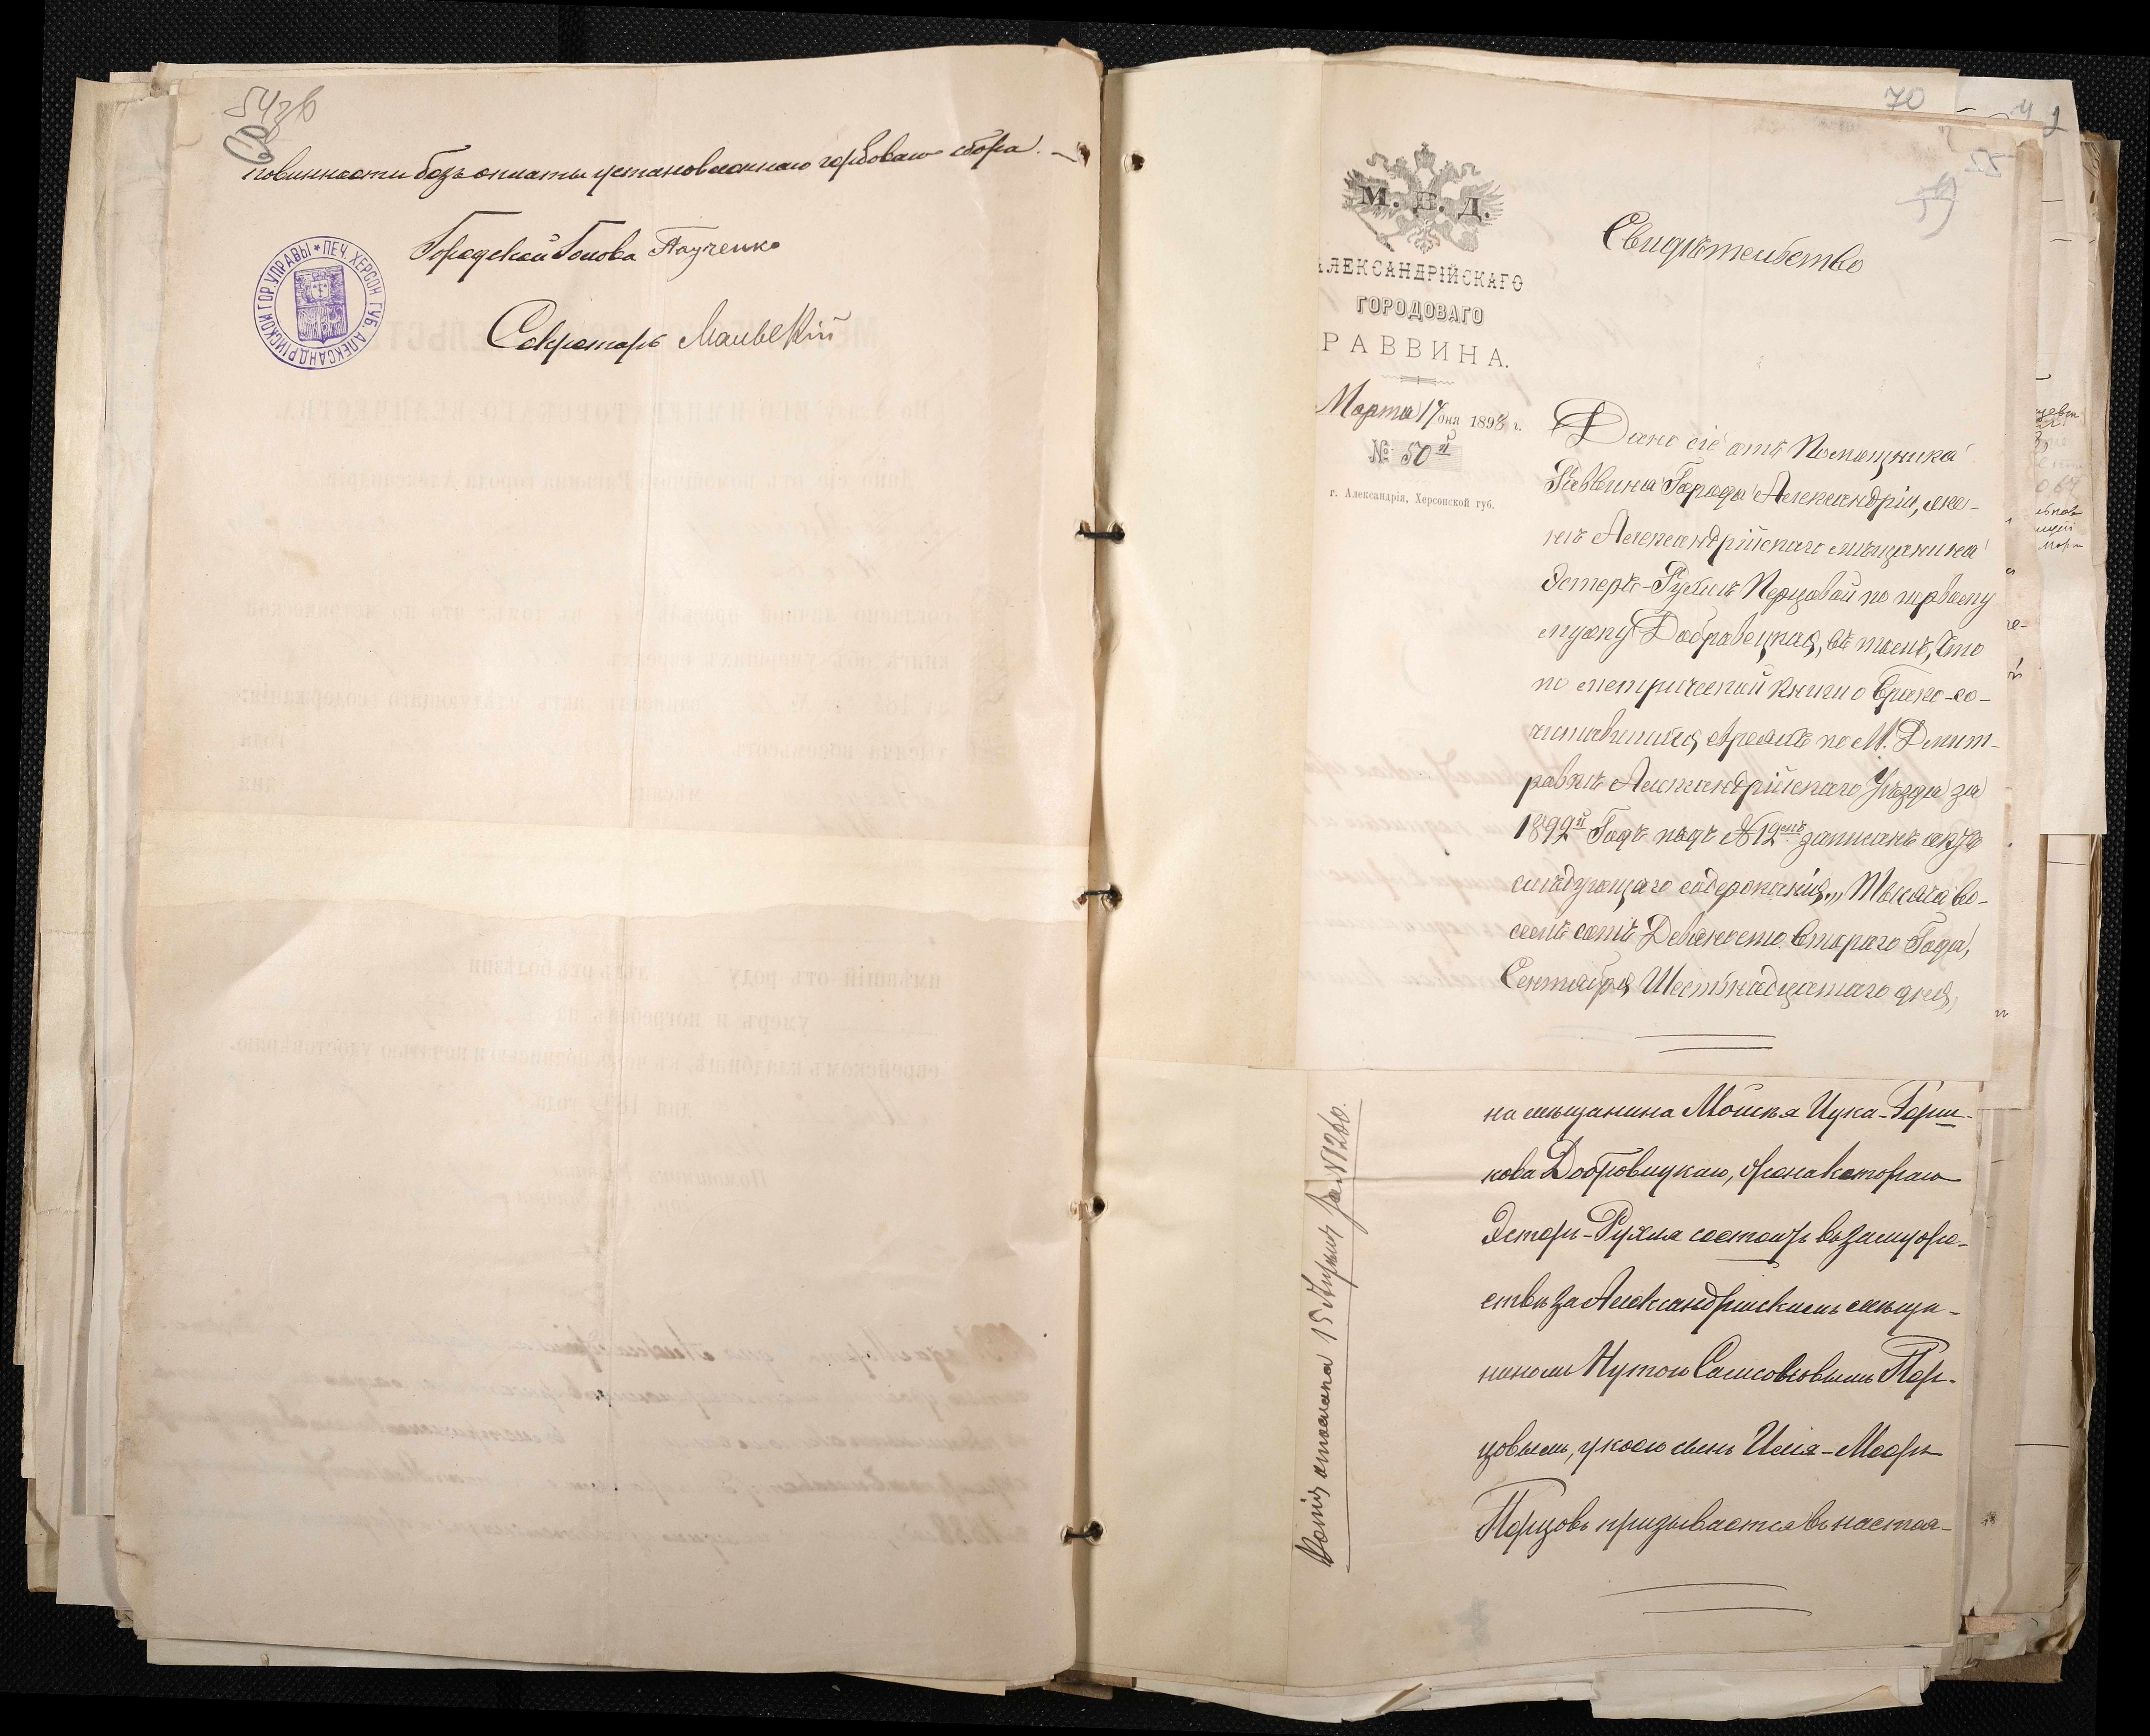 54об
повинности безъ оплаты установленнаго гербоваго сбора. —
Городской Голова Паученко
Секретарь
ПЕЧ. ХЕРСОН. ГУБ. АЛЕКСАНДРІЙСКОЙ ГОР. УПРАВЫ
70
55
М. В. Д.
АЛЕКСАНДРІЙСКАГО
ГОРОДОВАГО
РАВВИНА.
Марта 17 дня 1898 г.
№ 50й
г. Александрія, Херсонской губ.
Свидѣтельство
Дано сіе отъ Помощника
Раввина Города Александріи, же-
нѣ Александрійскаго мѣщанина
Эстеръ-Рухлѣ Перцовой по первому
мужу Добровецкая, въ томъ, что
по метрической книги о Брако-со-
четавшихся евреяхъ по М. Дмит-
ровкѣ Александрійскаго Уѣзда за
1892й Годъ подъ №12мъ записанъ актъ
слѣдующаго содержанія „Тысяча во-
семь сотъ Девяносто Второго Года,
Сентября Шестнадцатаго дня,
на мѣщанина Мошка Ицка-Герш-
кова Добровицкаго, жена котораго
Эстеръ-Рухля состоитъ въ замуже-
ствѣ за Александрійскимъ мѣща-
ниномъ Нутою Самсоновымъ Пер-
цовымъ, у коего сынъ Илія-Мееръ
Перцовъ призывается въ настоя-
Копія отослана 15 Апрѣля за №1260.